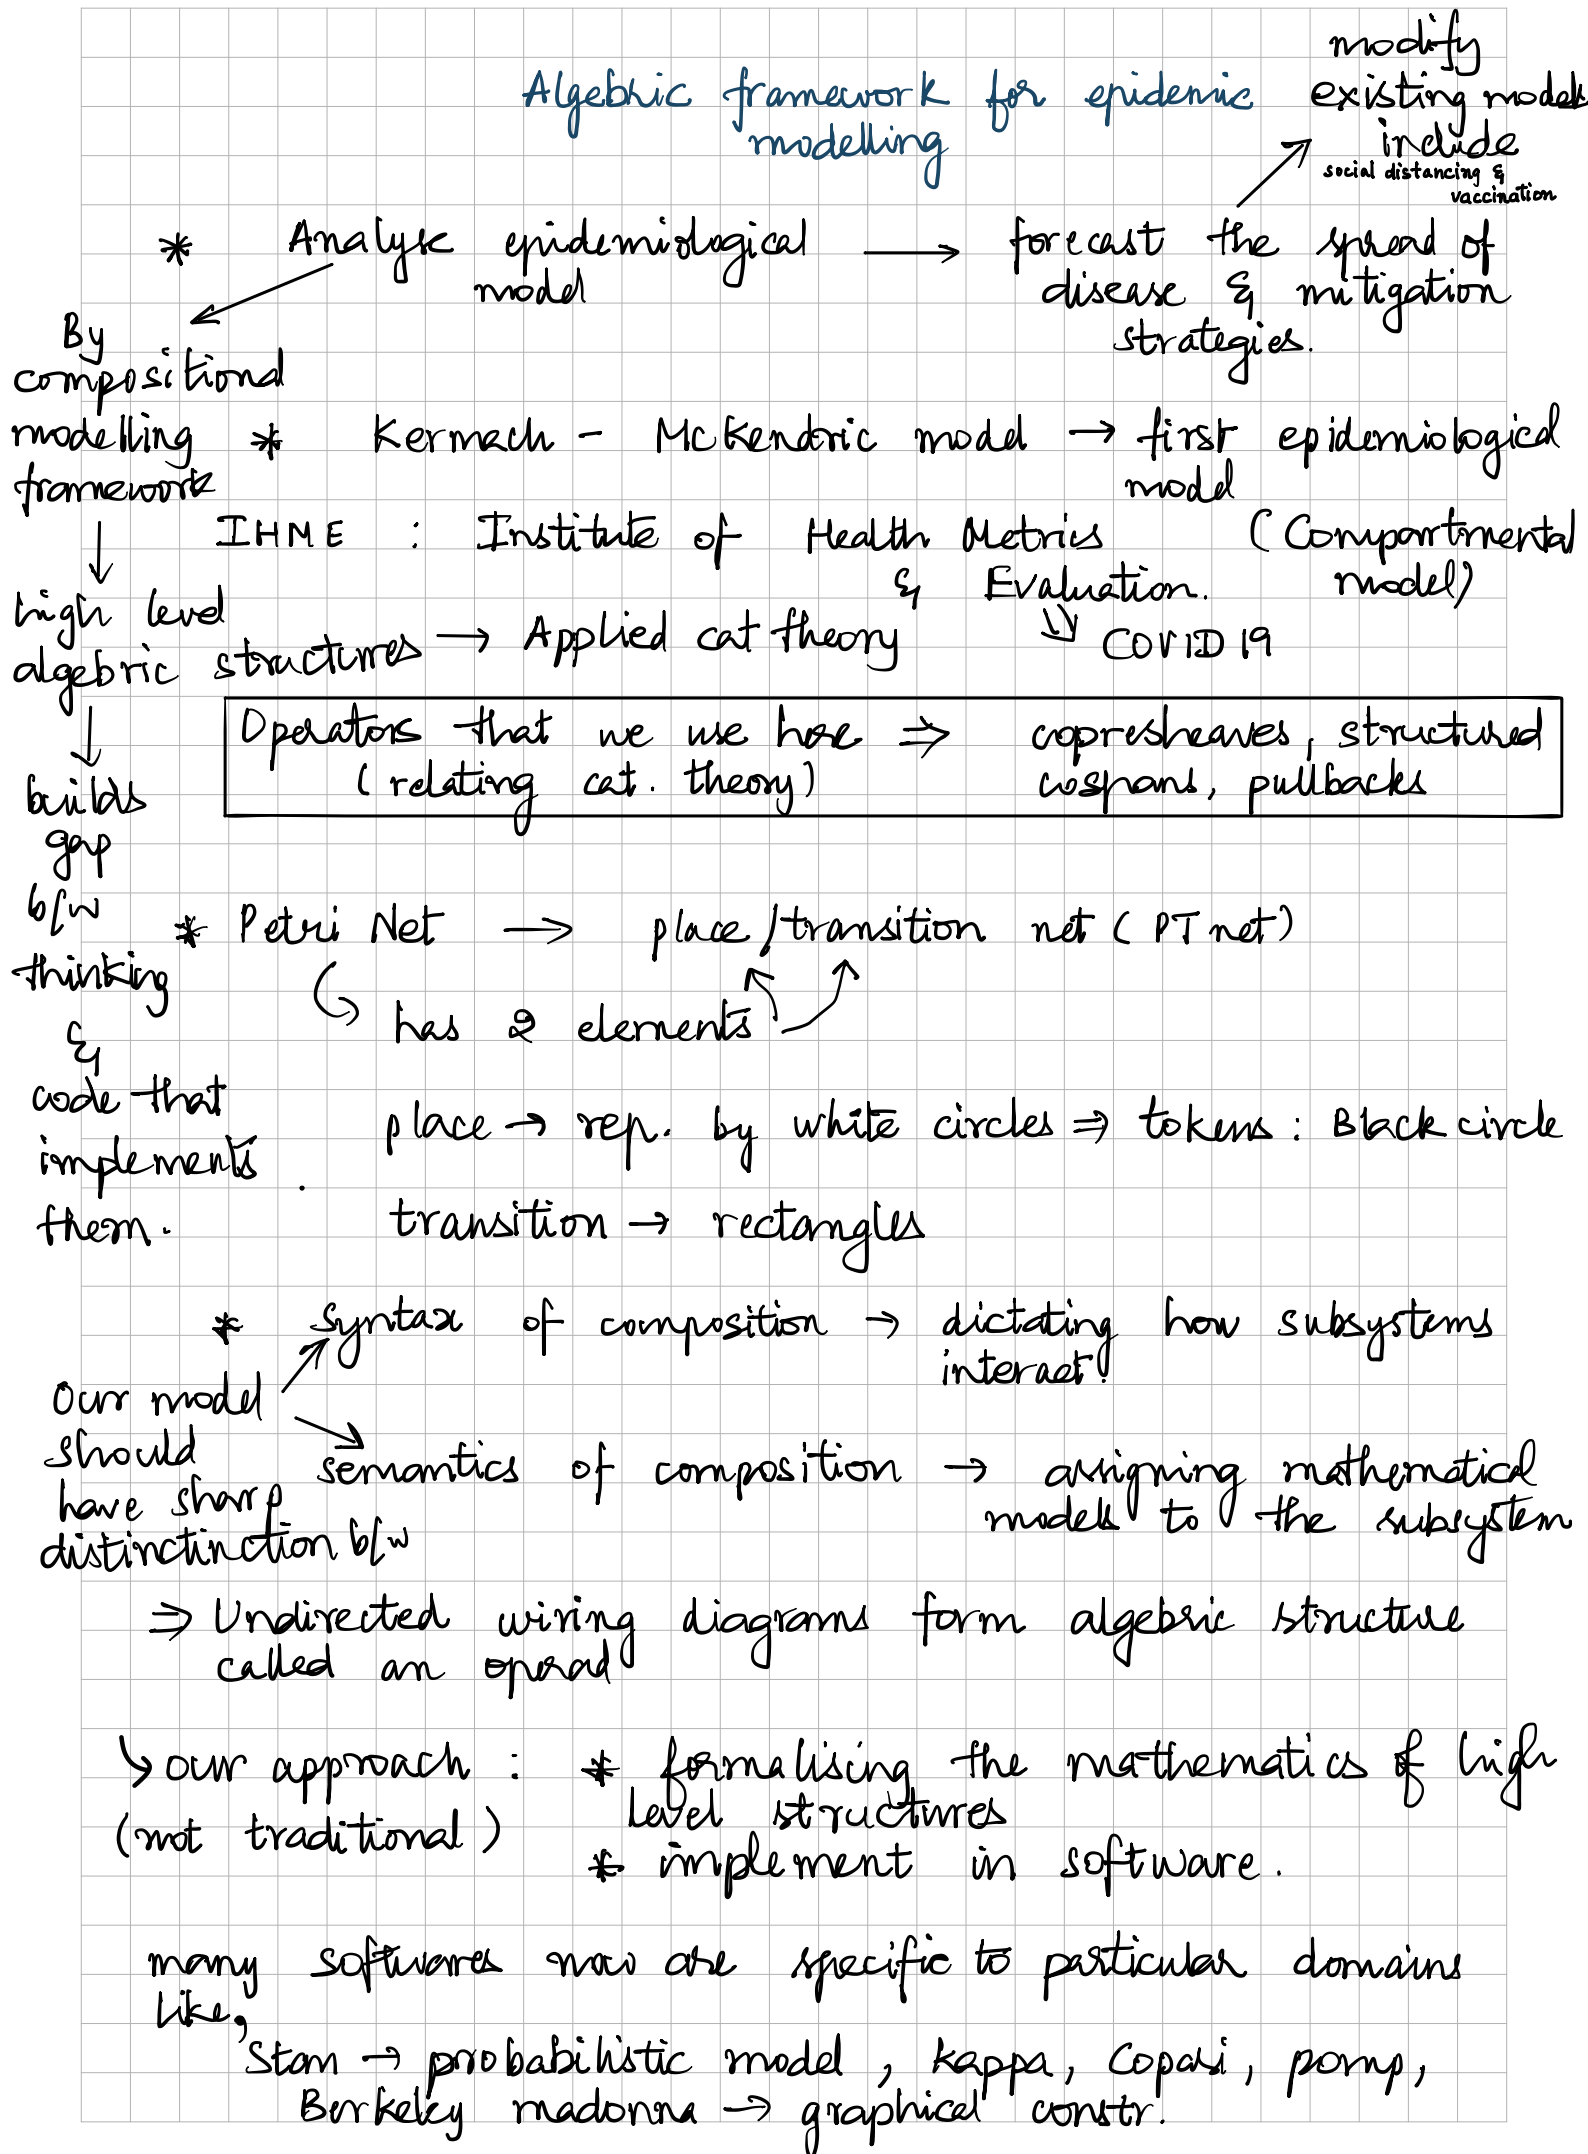 modify
Algebric framework for epidemic existing models
modelling include
social distancing &
vaccination
* Analyse epidemiological → forecast the spread of
model disease & mitigation
strategies.
By
compositional
modelling
framework
↓
high level
algebric structures → Applied cat theory
↓
builds
gap
b/w
thinking
&
code that
implements
them.
* Kermach - McKendric model → first epidemiological
model
(Compartmental
model)
IHME : Institute of Health Metrics
& Evaluation.
⇓ COVID 19
Operators that we use here ⇒ copresheaves, structured
(relating cat. theory) cospans, pullbacks
* Petri Net → place/transition net (PT net)
has 2 elements
place → rep. by white circles ⇒ tokens : Black circle
transition → rectangles
* syntax of composition → dictating how subsystems
interact!
Our model
should
have sharp
distinctinction b/w
semantics of composition → assigning mathematical
models to the subsystem
⇒ Undirected wiring diagrams form algebric structure
called an operad
↳ our approach : * formalising the mathematics of high
(not traditional) level structures
* implement in software.
many softwares now are specific to particular domains
like,
Stan → probabilistic model, kappa, Copasi, pomp,
Berkeley madonna → graphical constr.